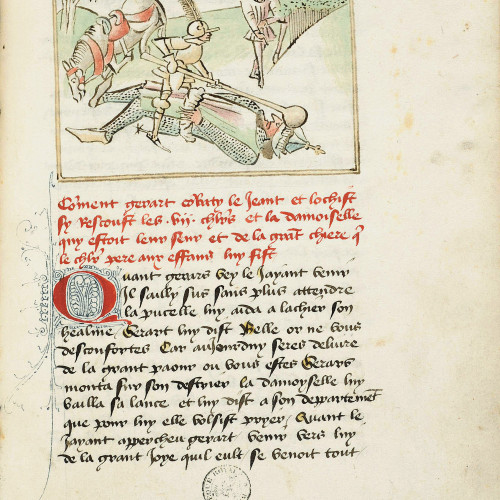 Coment gerart cobaty le Jeant et lochist
sy Rescoust les .vij. chlrs et la damoiselle
quy estoit leur seur et de la grant chiere q
le chlr pere aux effans luy fist
Quant gerars vey le Jayant venir
Il sailly sus sans plus attendre
la pucelle luy aida a lachier son
healme Gerart luy dist Belle or ne vous
desconfortes Car aujourduy seres delivre
de la grant paour ou vous estes Gerars
monta sur son destrier la damoyselle luy
bailla sa lance et luy dist a son departement
que pour luy elle volsist pryer Quant le
Jayant appercheu gerart venir vers luy
de la grant Joye quil eult se venoit tout